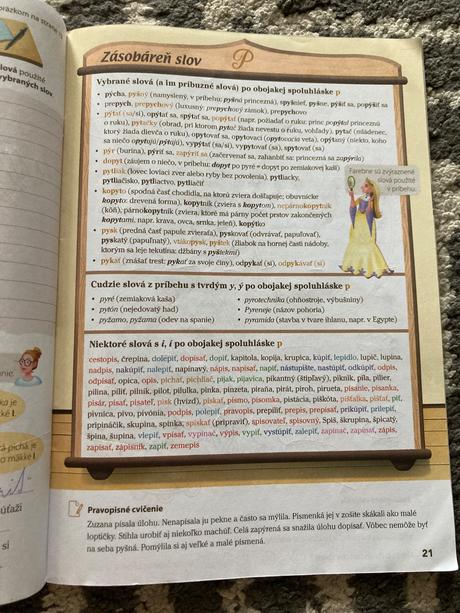 Zásobáreň slov P
Vybrané slová (a im príbuzné slová) po obojakej spoluhláske p
• pýcha, pyšný (namyslený, v príbehu: pyšná princezná), spyšnieť, pyšne, pýšiť sa, popýšiť sa
• prepych, prepychový (luxusný: prepychový zámok), prepychovo
• pýtať (sa/si), opýtať sa, spýtať sa, popýtať (napr. požiadať o ruku: princ popýtal princeznú
o ruku), pytačky (obrad, pri ktorom pytač žiada nevestu o ruku, vohľady), pytač (mládenec,
ktorý žiada dievča o ruku), opytovať sa, opytovací (opytovacia veta), opýtaný (niekto, koho
sa niečo opytujú/pýtajú), vypýtať (sa/si), vypytovať (sa), spytovať (sa)
• pýr (burina), pýriť sa, zapýriť sa (začervenať sa, zahanbiť sa: princezná sa zapýrila)
• dopyt (záujem o niečo, v príbehu: dopyt po pyré = dopyt po zemiakovej kaši)
• pytliak (lovec loviaci zver alebo ryby bez povolenia), pytliacky,
pytliačisko, pytliactvo, pytliačiť
• kopyto (spodná časť chodidla, na ktorú zviera došľapuje; obuvnícke
kopyto: drevená forma), kopytník (zviera s kopytom), nepárnokopytník
(kôň), párnokopytník (zviera, ktoré má párny počet prstov zakončených
kopytami, napr. krava, ovca, srnka, jeleň), kopýtko
• pysk (predná časť papule zvieraťa), pyskovať (odvrávať, papuľovať),
pyskatý (papuľnatý), vtákopysk, pyštek (žliabok na hornej časti nádoby,
ktorým sa leje tekutina: džbány s pyštekmi)
• pykať (znášať trest: pykať za svoje činy), odpykať (si), odpykávať (si)
Farebne sú zvýraznené
slová použité
v príbehu.
Cudzie slová z príbehu s tvrdým y, ý po obojakej spoluhláske p
• pyré (zemiaková kaša)
• pytón (nejedovatý had)
• pyžamo, pyžama (odev na spanie)
• pyrotechnika (ohňostroje, výbušniny)
• Pyreneje (názov pohoria)
• pyramída (stavba v tvare ihlanu, napr. v Egypte)
Niektoré slová s i, í po obojakej spoluhláske p
cestopis, črepina, dolepiť, dopísať, dopiť, kapitola, kopija, krupica, kúpiť, lepidlo, lupič, lupina,
nadpis, nakúpiť, nalepiť, napínavý, nápis, napísať, napiť, nástupište, nastúpiť, odkúpiť, odpis,
odpísať, opica, opis, pichať, pichliač, pijak, pijavica, pikantný (štipľavý), piknik, píla, pilier,
pilina, píliť, pilník, pilot, pilulka, pinka, pinzeta, piraňa, pirát, piroh, pirueta, písanie, písanka,
pisár, písať, pisateľ, pisk (hvizd), pískať, písmo, písomka, pistácia, pištoľa, píšťalka, píšťať, piť,
pivnica, pivo, pivónia, podpis, polepiť, pravopis, prepiliť, prepis, prepísať, prikúpiť, prilepiť,
pripináčik, skupina, spinka, spískať (pripraviť), spisovateľ, spisovný, Spiš, škrupina, špicatý,
špina, šupina, vlepiť, vpísať, vypínač, výpis, vypiť, vystúpiť, zalepiť, zapínač, zapínať, zápis,
zapísať, zápisník, zapiť, zemepis
Pravopisné cvičenie
Zuzana písala úlohu. Nenapísala ju pekne a často sa mýlila. Písmenká jej v zošite skákali ako malé
loptičky. Stihla urobiť aj niekoľko machúľ. Celá zapýrená sa snažila úlohu dopísať. Vôbec nemôže byť
na seba pyšná. Pomýlila si aj veľké a malé písmená.
21